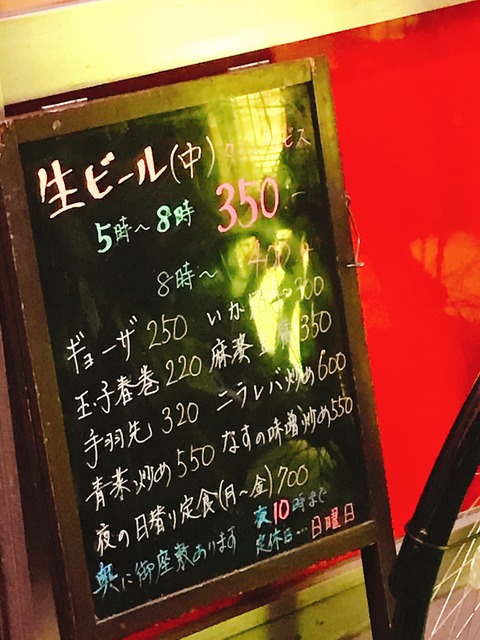 生ビール(中)
5時〜8時 350
8時〜 400
ギョーザ 250 いか 300
玉子春巻 220 麻婆豆腐 350
手羽先 320 ニラレバ炒め 600
青菜炒め 550 なすの味噌炒め 550
夜の日替り定食(月〜金) 700
奥に御座敷あります
夜10時まで
定休日…日曜日